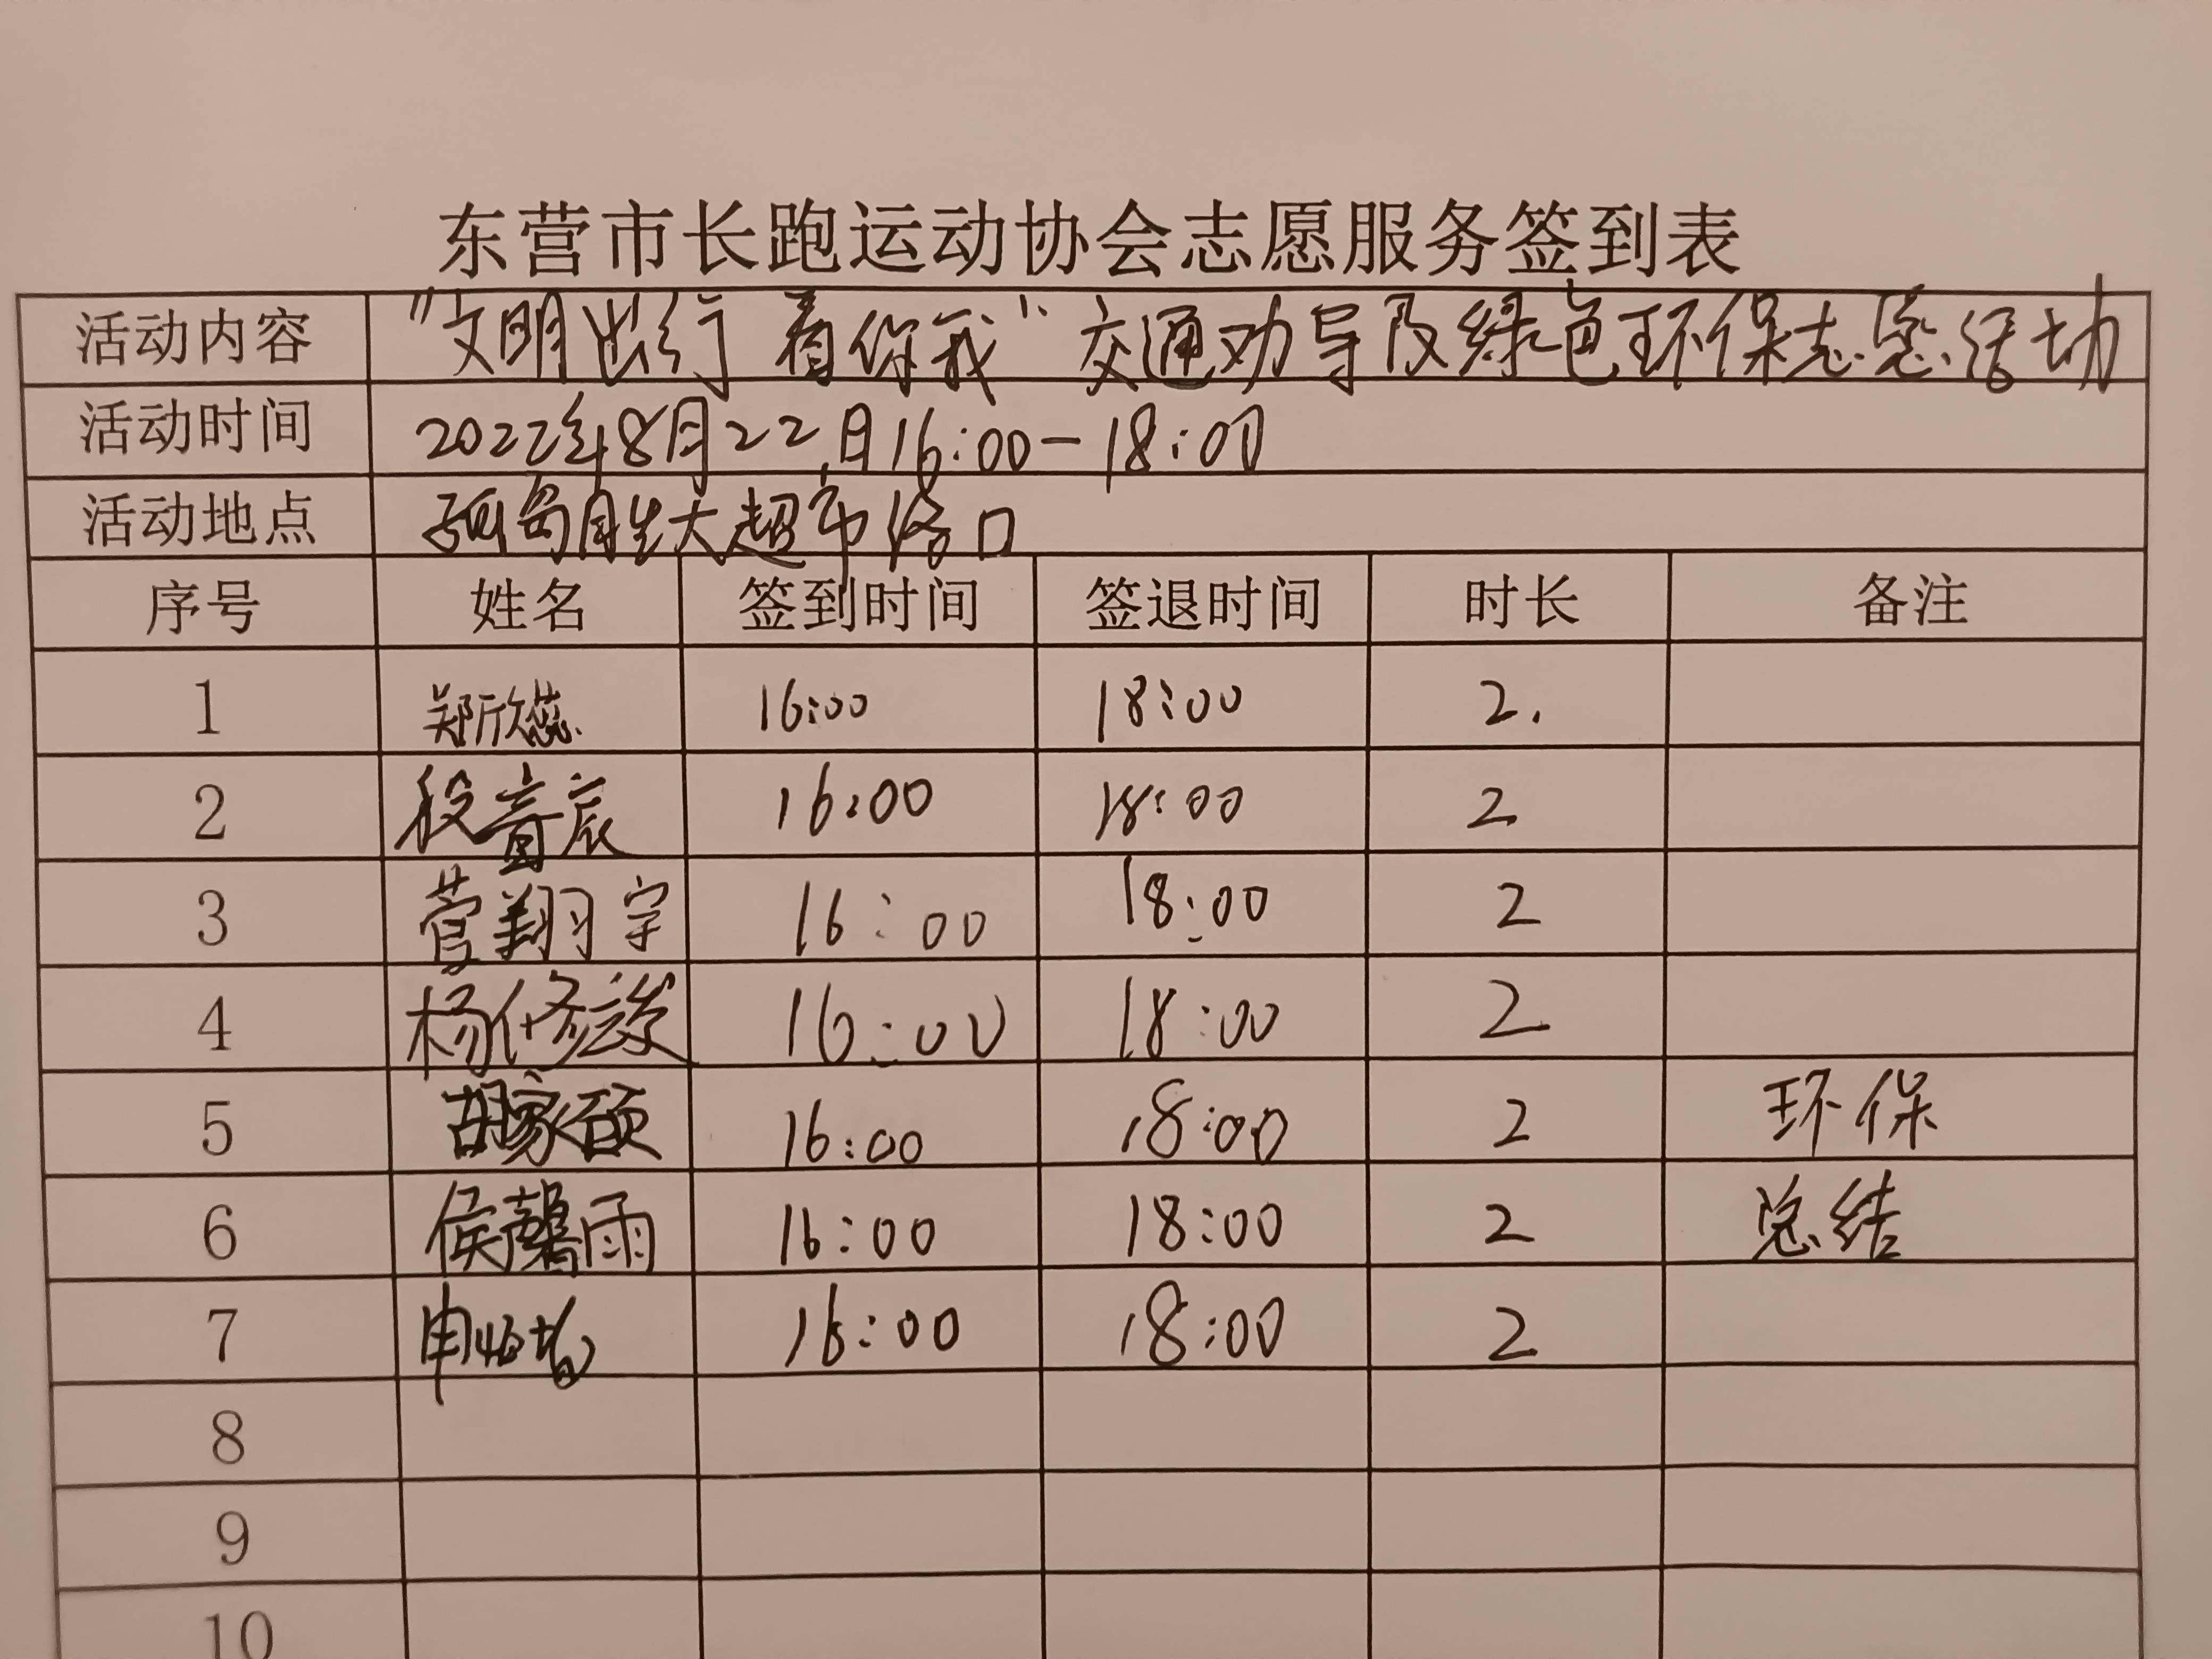 东营市长跑运动协会志愿服务签到表
活动内容 "文明出行 看你我" 交通劝导及绿色环保志愿活动
活动时间 2022年8月22日16:00-18:00
活动地点 孤岛胜大超市路口
序号 姓名 签到时间 签退时间 时长 备注
1 郑欣蕊 16:00 18:00 2.
2 段音辰 16:00 18:00 2
3 菅翔宇 16:00 18:00 2
4 杨修 16:00 18:00 2
5 胡家硕 16:00 18:00 2 环保
6 侯馨雨 16:00 18:00 2 总结
7 申 16:00 18:00 2
8
9
10